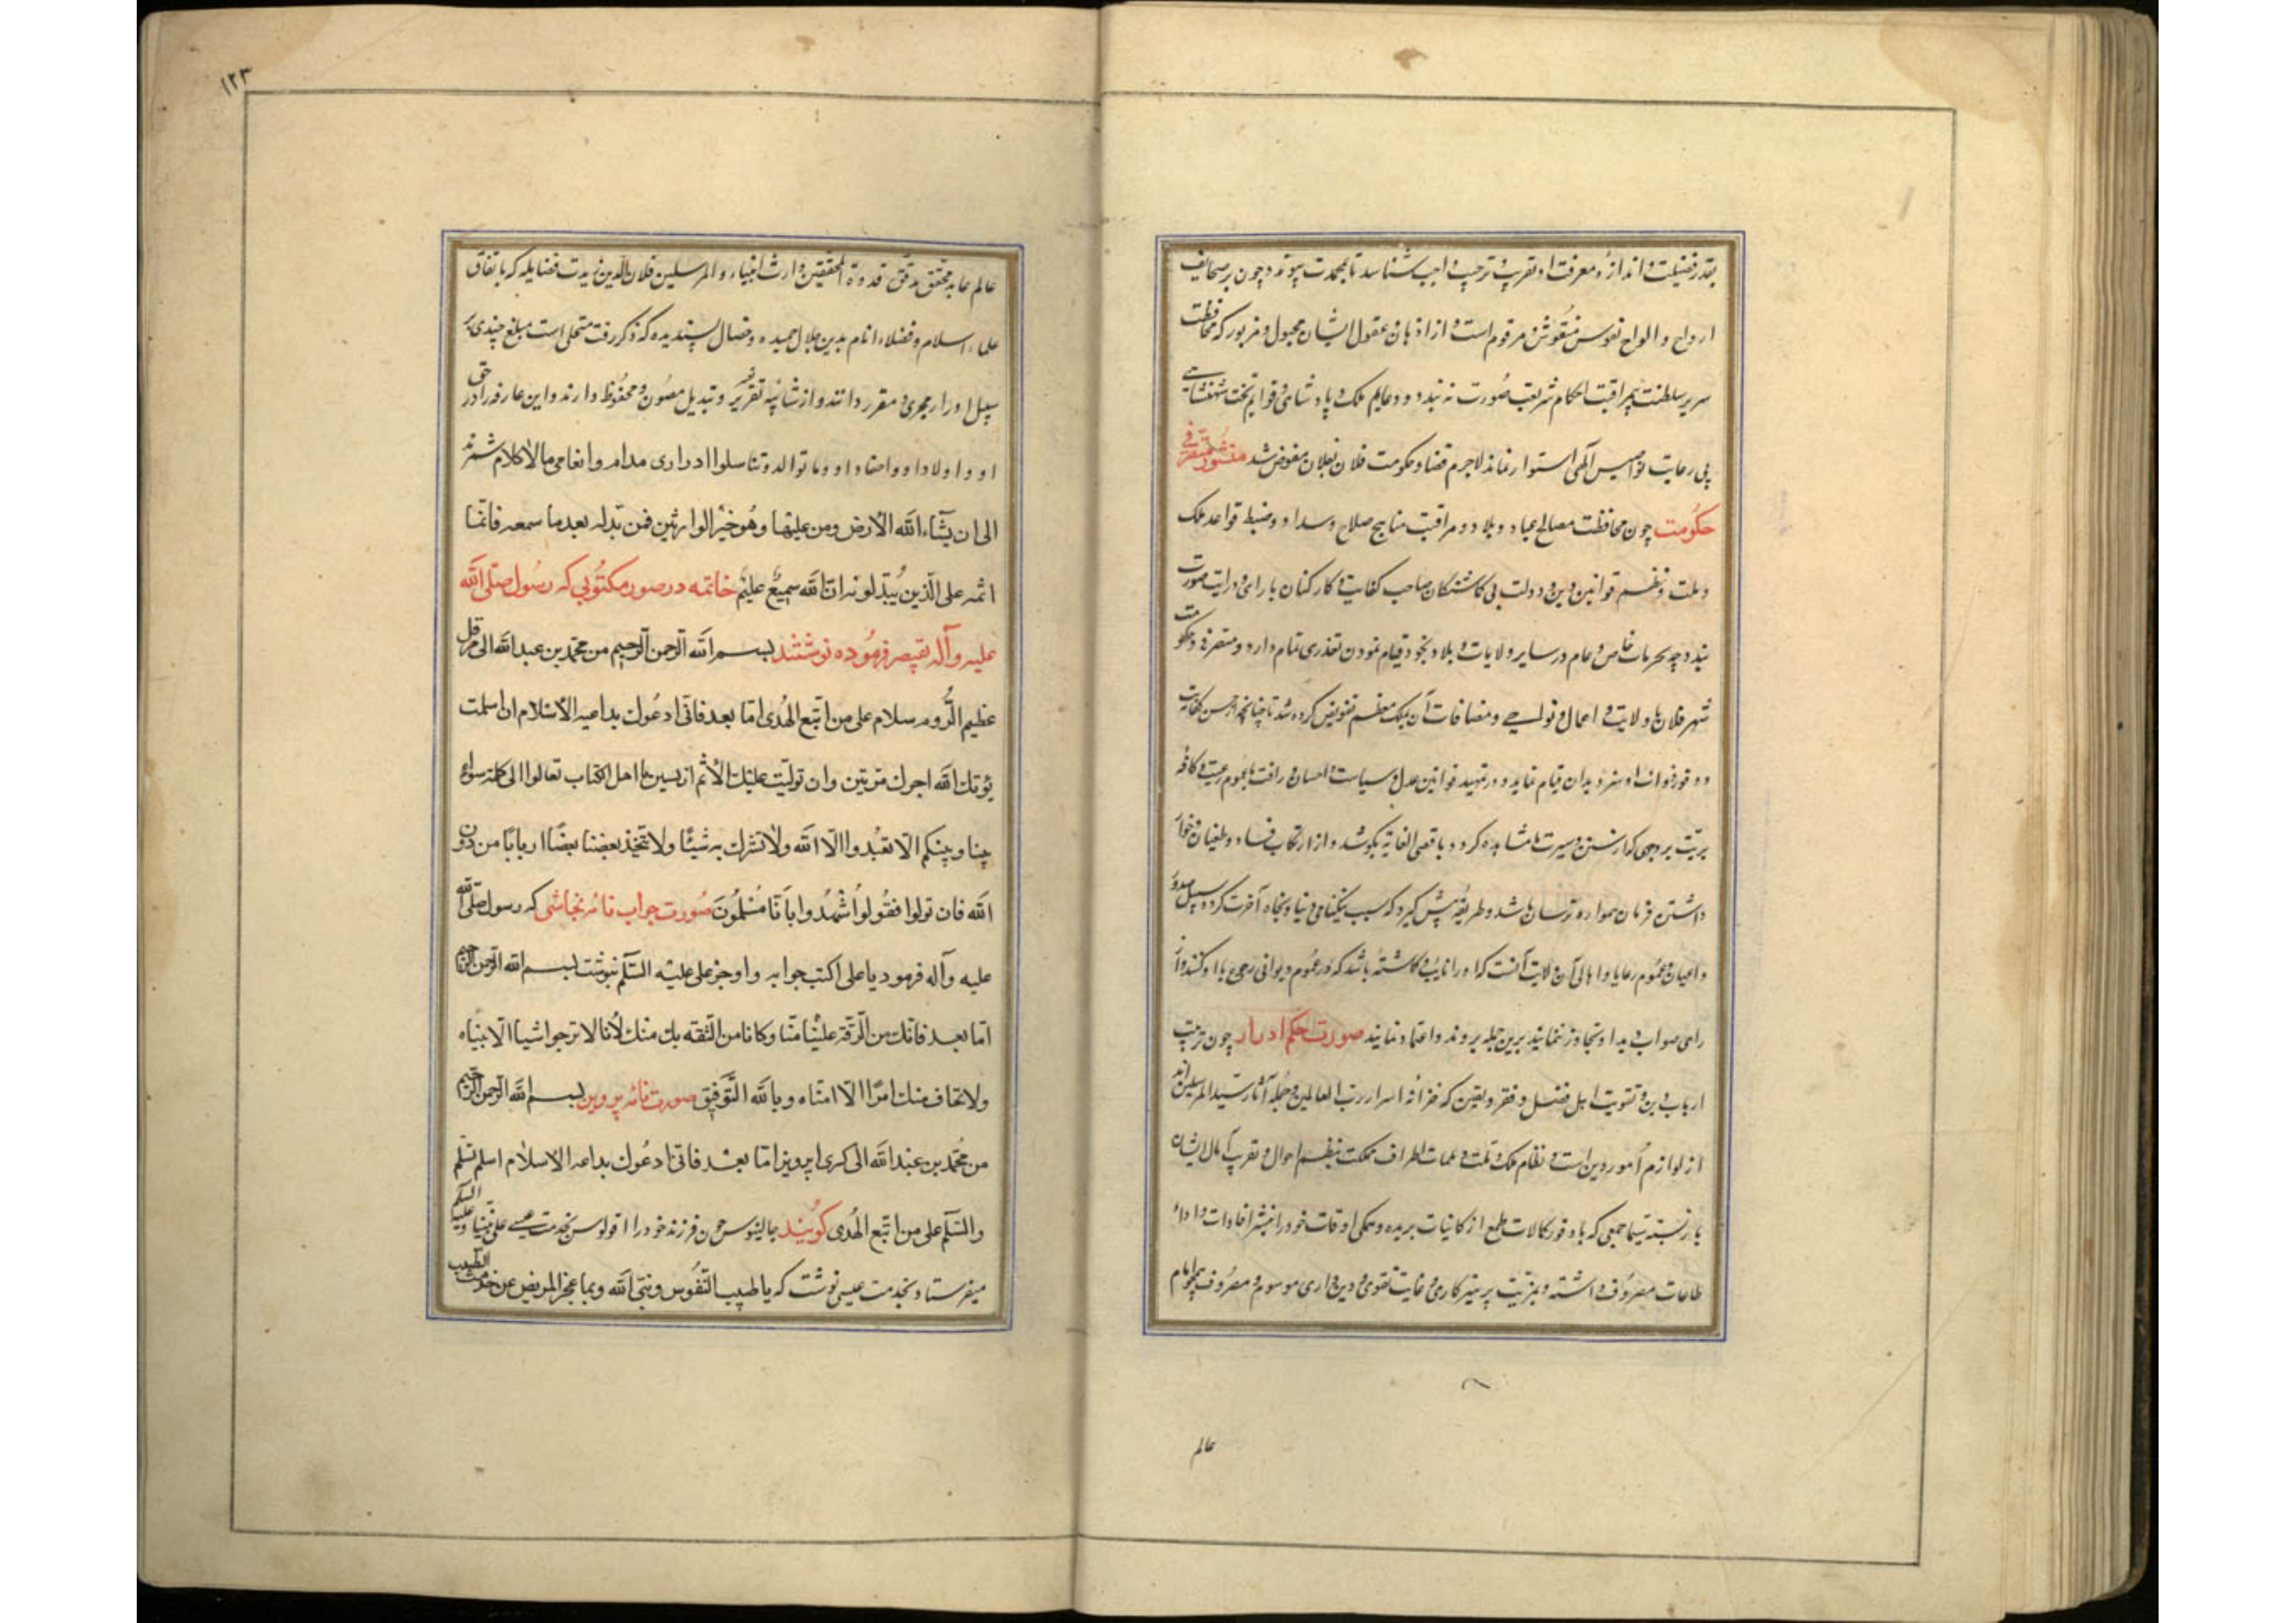 بقدر فضیلت و اندازهٔ معرفت او تقریب و ترحیب واجب شناسد تا بمحمدت پیوندد چون بر صحایف
ارواح و الواح نفوس منقوش و مرقوم است و از اذهان عقول ایشان مجبول و مزبور که محافظت
سریر سلطنت بی مراقبت احکام شریعت صورت نه بندد و دعایم ملک و پادشاهی و قوایم تخت شهنشاهی
بی رعایت نوامیس آلهی استوار نماند لاجرم قضا و حکومت فلان بفلان مفوض شد منشور متصرفی
حکومت چون محافظت مصالح عباد و بلاد و مراقبت مناهج صلاح و سداد و ضبط قواعد ملک
و ملت و نظم قوانین دین و دولت بی گماشتگان صاحب کفایت و کارکنان با رای و درایت صورت
نبندد چه بحر مات خاص و عام در سایر ولایات و بلاد بخود قیام نمودن تعذری تمام دارد و متصرفی و حکومت
شهر فلان با ولایت و اعمال و نواحی و مضافات آن بملک معظم تفویض کرده شد تا چنانچه از حسن کفایت
و وفور فوانا او سزد بدان قیام نماید و در تمهید قوانین عدل و سیاست و احسان و رافت با عموم رعیت و کافه
بریت بر وجهی که از سنن و سیرت ما مشاهده کرد و باقصی الغایة بکوشد و از ارتکاب فساد و طغیان و خوار
داشتن فرمان همواره ترسان باشد و طریقه پیش گیرد که سبب نیکنامی دنیا و نجات آخرت گردد سبیل صدور
و اعیان و عموم رعایا و اهالی آن ولایت آنست که او را نایب و گماشته باشد که در عموم دیوانی رجوع با او کنند و از
رای صواب دید او تجاوز ننمایند برین جمله بروند و اعتماد نمایند صورت حکم ادرار چون تربیت
ارباب دین و تقویت اهل فضل و فقر و یقین که خزانه اسرار رب العالمین و حمله آثار سید المرسلین اند
از لوازم امور دین است و نظام ملک و ملت و مهمات اطراف مملکت بنظم احوال و تقرب آمال ایشان
باز بسته سیما جمعی که با وفور کمالات طمع از کاینات بریده و همگی اوقات خود را بنشر افادات و اداء
طاعات مصروف داشته و بمزیت پرهیزکاری و غایت تقوی و دین داری موسوم و معروف همچو امام
عالم
۱۲۳
عالم عابد محقق مدقق قدوة المحققین وارث انبیاء و المرسلین فلان الدین زیدت فضایله که باتفاق
علماء اسلام و فضلاء انام بدین جلال حمیده و خصال پسندیده که ذکر رفت متحلی است مبلغ چندی بر
سبیل ادرار مجری و مقرر دانند و از شائبه تغییر و تبدیل مصون و محفوظ دارند و این عارفه را در حق
او و اولاد او و احفاد او و ما توالدو تناسلوا ادراری مدام و انعامی مالاکلام شمرند
الی ان یشاء الله الارض و من علیها و هو خیر الوارثین فمن بدله بعد ما سمعه فانما
اثمه علی الذین یبدلونه ان الله سمیع علیم خاتمه در صور مکتوبی که رسول صلی الله
علیه و آله بقیصر فرموده نوشتند بسم الله الرحمن الرحیم من محمد بن عبد الله الی هرقل
عظیم الروم سلام علی من اتبع الهدی اما بعد فانی ادعوک بداعیه الاسلام ان اسلمت
یؤتک الله اجرک مرتین و ان تولیت علیک الاثم یا اهل الکتاب تعالوا الی کلمة سواء
بیننا و بینکم الا نعبدوا الا الله و لا نشرک به شیئا و لا یتخذ بعضنا بعضا اربابا من دون
الله فان تولوا فقولوا اشهدوا بانا مسلمون صورت جواب نامه نجاشی که رسول صلی الله
علیه و آله فرمود یا علی اکتب جوابه و اوجز علی علیه السلم نبوشت بسم الله الرحمن الرحیم
اما بعد فانک من الرقة علینا منا و کانا من الثقة بک منک لانا لا نرجوا شیا الا نبیاه
و لا نخاف منک امرا الا امناه و بالله التوفیق صورت نامه پرویز بسم الله الرحمن الرحیم
من محمد بن عبد الله الی کسری اپرویز اما بعد فانی ادعوک بداعیه الاسلام اسلم تسلم
و السلم علی من اتبع الهدی گویند جالینوس چون فرزند خود را اقولوس بخدمت عیسی علی نبینا و علیه السلم
میفرستاد بخدمت عیسی نوشت که یا طبیب النفوس و نبی الله و بما عجز المریض عن خدمت الطبیب